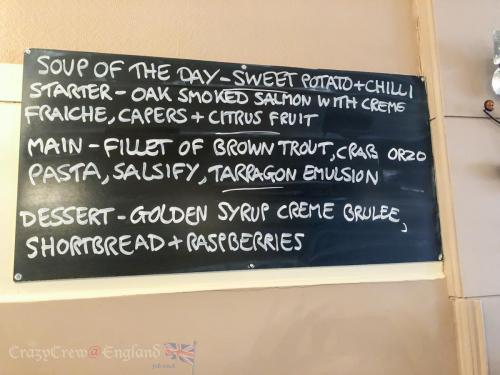 SOUP OF THE DAY - SWEET POTATO + CHILLI
STARTER - OAK SMOKED SALMON WITH CREME
FRAICHE, CAPERS + CITRUS FRUIT
MAIN - FILLET OF BROWN TROUT, CRAB ORZO
PASTA, SALSIFY, TARRAGON EMULSION
DESSERT - GOLDEN SYRUP CREME BRULEE,
SHORTBREAD + RASPBERRIES
CrazyCrew@England